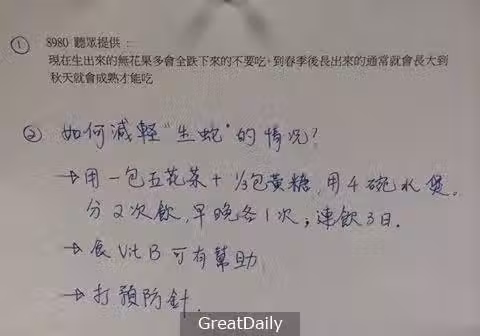 ① 8980 聽眾提供：
現在生出來的無花果多會全跌下來的不要吃，到春季後長出來的通常就會長大到
秋天就會成熟才能吃
② 如何減輕"生蛇"的情況？
→用一包五花茶+⅓包黃糖，用4碗水煲，
分2次飲，早晚各1次，連飲3日．
→食Vit B可有幫助
→打預防針．
GreatDaily